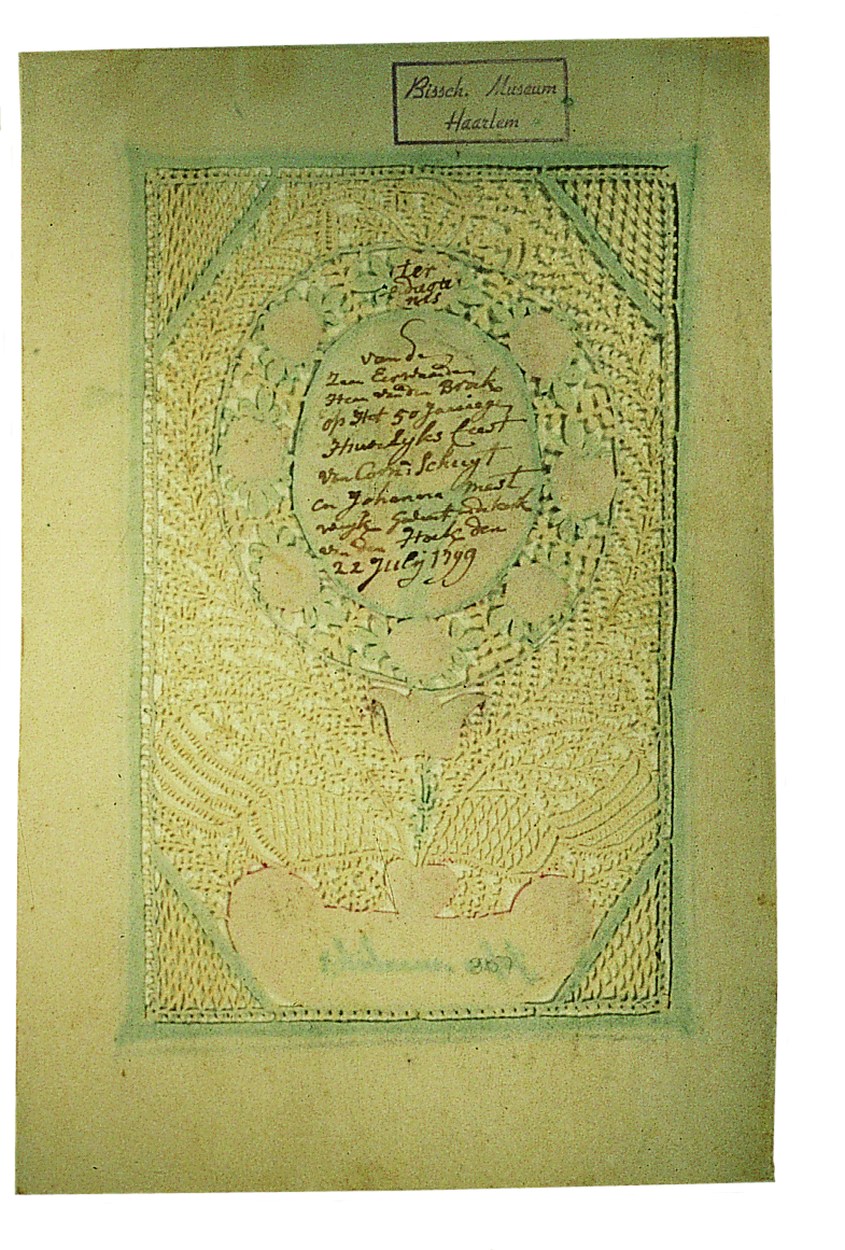 Bissch. Museum
Haarlem
ter
gedagte
nis
van de
Zeer Eerwaarden
Heer van den Broek
op Het 50 Jaarige
Huwelyks feest
van Corn: Schuyt
en Johanna
den
22 July 1799
367